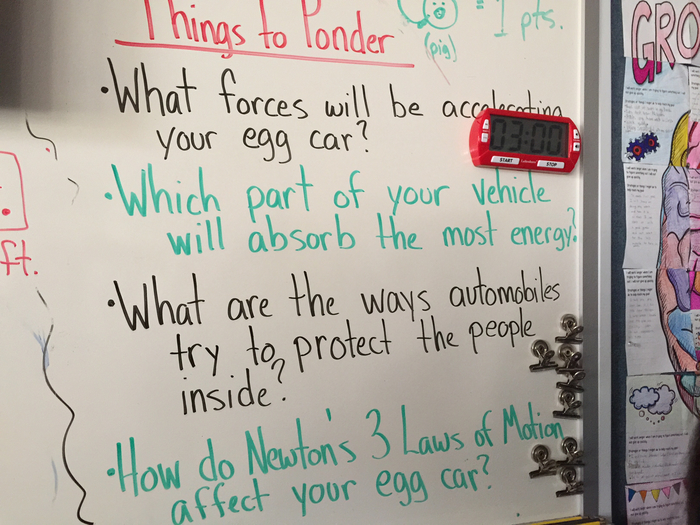 Things to Ponder
= 1 pts.
(pig)
GRO
• What forces will be accelerating
your egg car?
03:00
START
STOP
• Which part of your vehicle
will absorb the most energy?
ft.
• What are the ways automobiles
try to protect the people
inside?
• How do Newton's 3 Laws of Motion
affect your egg car?